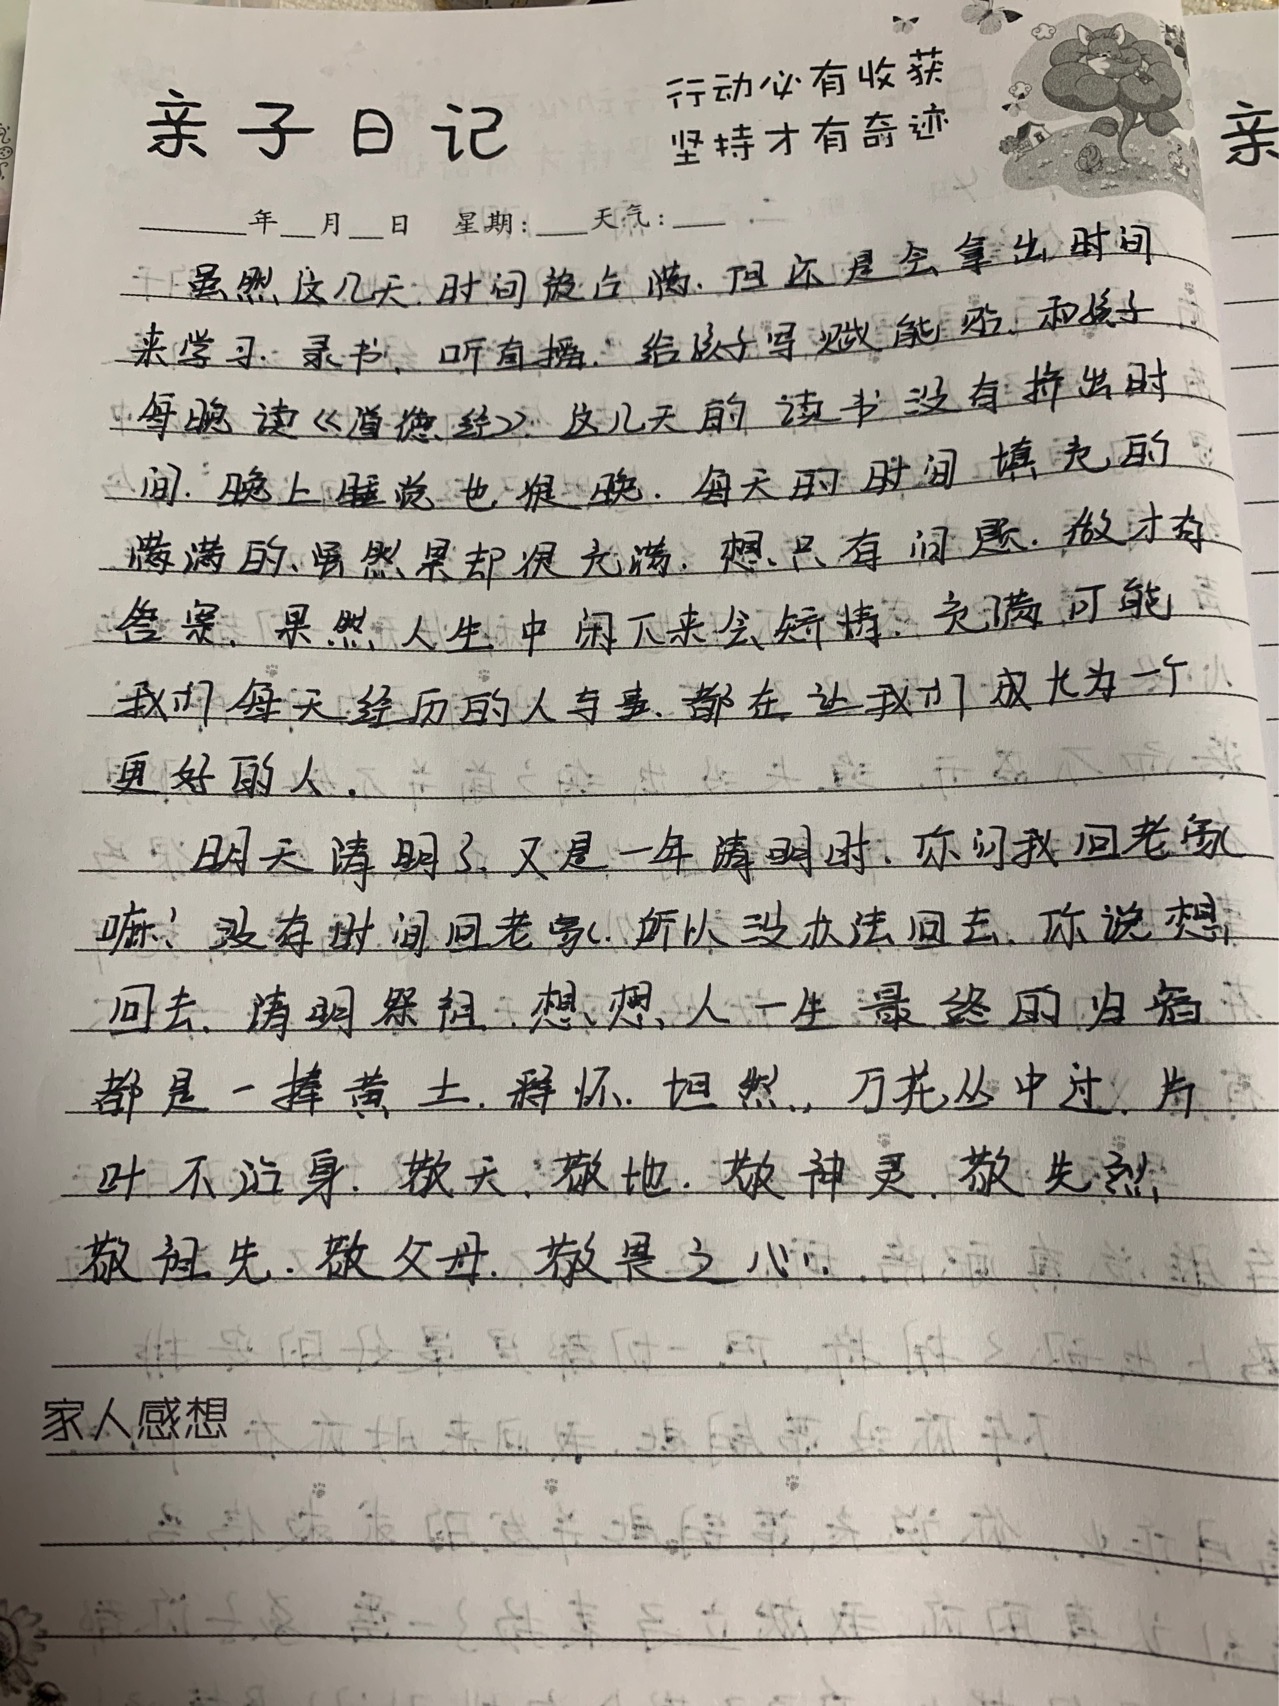 亲子日记
行动必有收获
坚持才有奇迹
年 月 日 星期: 天气:
虽然这几天时间被占满.但还是会拿出时间
来学习.录书.听直播.给孩子写赋能贴.和孩子
每晚读《道德经》.这几天的读书没有挤出时
间.晚上睡觉也很晚.每天的时间填充的
满满的、虽然累却很充满.想、只有问题.做才有
答案.果然人生中闲下来会矫情.充满可能
我们每天经历的人与事.都在让我们成长为一个
更好的人.
明天清明了.又是一年清明时.你问我回老家
嘛?没有时间回老家.所以没办法回去.你说想
回去.清明祭祖.想想人一生最终的归宿
都是一捧黄土.释怀.坦然.万花丛中过.片
叶不沾身.敬天.敬地.敬神灵.敬先烈
敬祖先.敬父母.敬畏之心.
家人感想
亲